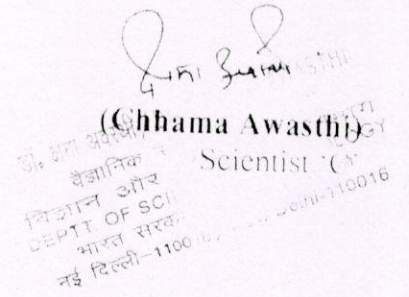 (Chhama Awasthi)
Scientist 'C'
डॉ. क्षमा अवस्थी
वैज्ञानिक
विज्ञान और
DEPTT. OF SCI
भारत सरका
नई दिल्ली-1100
Delhi-110016